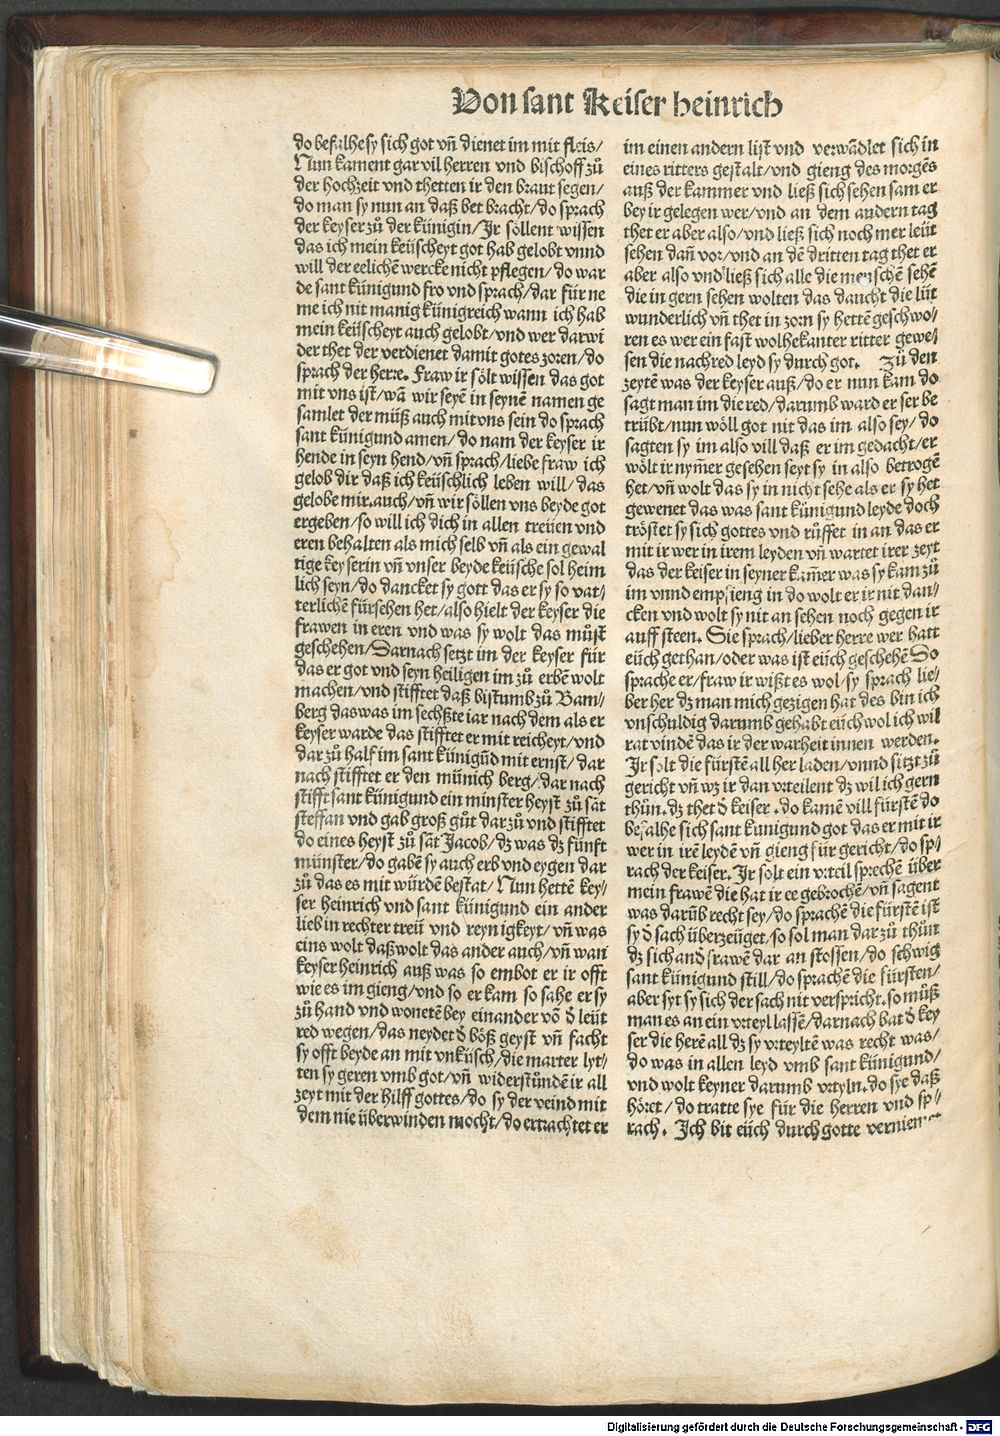 Von sant Keiser heinrich
do befalhe sy sich got vñ dienet im mit fleis/
Nun kament gar vil herren vnd bischoff zů
der hochzeit vnd thetten ir den braut segen/
do man sy nun an daß bet bracht/do sprach
der keyser zů der künigin/Ir söllent wissen
das ich mein keüscheyt got hab gelobt vnnd
will der eelichẽ wercke nicht pflegen/do war
de sant künigund fro vnd sprach/dar für ne
me ich nit manig künigreich wann ich hab
mein keüscheyt auch gelobt/vnd wer darwi
der thet der verdienet damit gotes zoren/do
sprach der herre. Fraw ir sölt wissen das got
mit vns ist/wã wir seyẽ in seynẽ namen ge
samlet der müß auch mit vns sein do sprach
sant künigund amen/do nam der keyser ir
hende in seyn hend/vñ sprach/liebe fraw ich
gelob dir daß ich keüschlich leben will/das
gelobe mir auch/vñ wir söllen vns beyde got
ergeben/so will ich dich in allen treüen vnd
eren behalten als mich selb vñ als ein gewal
tige keyserin vñ vnser beyde keüsche sol heim
lich seyn/do dancket sy gott das er sy so vat⸗
terlichẽ fürsehen het/also hielt der keyser die
frawen in eren vnd was sy wolt das můst
geschehen/Darnach setzt im der keyser für
das er got vnd seyn heiligen im zů erbẽ wolt
machen/vnd stifftet daß bistumb zů Bam⸗
berg das was im sechßte iar nach dem als er
keyser warde das stifftet er mit reicheyt/vnd
dar zů half im sant künigũd mit ernst/dar
nach stifftet er den münich berg/dar nach
stifft sant künigund ein minster heyst zů sãt
steffan vnd gab groß gůt dar zů vnd stifftet
do eines heyst zů sãt Jacob/dz was dz fünft
münster/do gabẽ sy auch erb vnd eygen dar
zů das es mit würdẽ bestat/Nun hettẽ key⸗
ser heinrich vnd sant künigund ein ander
lieb in rechter treü vnd reynigkeyt/vñ was
eins wolt daß wolt das ander auch/vñ wañ
keyser heinrich auß was so embot er ir offt
wie es im gieng/vnd so er kam so sahe er sy
zů hand vnd wonetẽ bey einander võ d̕ leüt
red wegen/das neydet d̕ böß geyst vñ facht
sy offt beyde an mit vnküsch/die marter lyt⸗
ten sy geren vmb got/vñ widerstůndẽ ir all
zeyt mit der hilff gottes/do sy der veind mit
dem nie überwinden mocht/do ertrachtet er
im einen andern list vnd verwãdlet sich in
eines ritters gestalt/vnd gieng des morgẽs
auß der kammer vnd ließ sich sehen sam er
bey ir gelegen wer/vnd an dem andern tag
thet er aber also/vnd ließ sich noch mer leüt
sehen dañ vor/vnd an dẽ dritten tag thet er
aber also vnd ließ sich alle die menschẽ sehẽ
die in gern sehen wolten das daucht die lüt
wunderlich vñ thet in zorn sy hettẽ geschwo⸗
ren es wer ein fast wolbekanter ritter gewe⸗
sen die nachred leyd sy durch got. Zů den
zeytẽ was der keyser auß/do er nun kam do
sagt man im die red/darumb ward er ser be
trübt/nun wöll got nit das im also sey/do
sagten sy im also vill daß er im gedacht/er
wölt ir nym̃er gesehen seyt sy in also betrogẽ
het/vñ wolt das sy in nicht sehe als er sy het
gewenet das was sant künigund leyde doch
tröstet sy sich gottes vnd růffet in an das er
mit ir wer in irem leyden vñ wartet irer zeyt
das der keiser in seyner kam̃er was sy kam zů
im vnnd empfieng in do wolt er ir nit dan⸗
cken vnd wolt sy nit an sehen noch gegen ir
auff steen. Sie sprach/lieber herre wer hatt
eüch gethan/oder was ist eüch geschehẽ Do
sprache er/fraw ir wißt es wol/sy sprach lie⸗
ber her dz man mich gezigen hat des bin ich
vnschuldig darumb gehabt eüch wol ich wil
rat vindẽ das ir der warheit innen werden.
Ir solt die fürstẽ all her laden/vnnd sitzt zů
gericht vñ wz ir dan vrteilent dz wil ich gern
thůn. dz thet d̕ keiser. do kamẽ vill fürstẽ do
befalhe sich sant kunigund got das er mit ir
wer in irẽ leydẽ vñ gieng für gericht/do sp⸗
rach der keiser. Ir solt ein vrteil sprechẽ über
mein frawẽ die hat ir ee gebrochẽ/vñ sagent
was darũb recht sey/do sprachẽ die fürstẽ ist
sy d̕ sach überzeüget/so sol man dar zů thůn
dz sich and̕ frawẽ dar an stossen/do schwig
sant künigund still/do sprachẽ die fürsten/
aber syt sy sich der sach nit verspricht. so můß
man es an ein vrteyl lassẽ/darnach bat d̕ key
ser die herẽ all dz sy vrteyltẽ was recht was/
do was in allen leyd vmb sant künigund/
vnd wolt keyner darumb vrtyln. do sye daß
höret/do tratte sye für die herren vnd sp⸗
rach. Ich bit eüch durch gotte
Digitalisierung gefördert durch die Deutsche Forschungsgemeinschaft - DFG